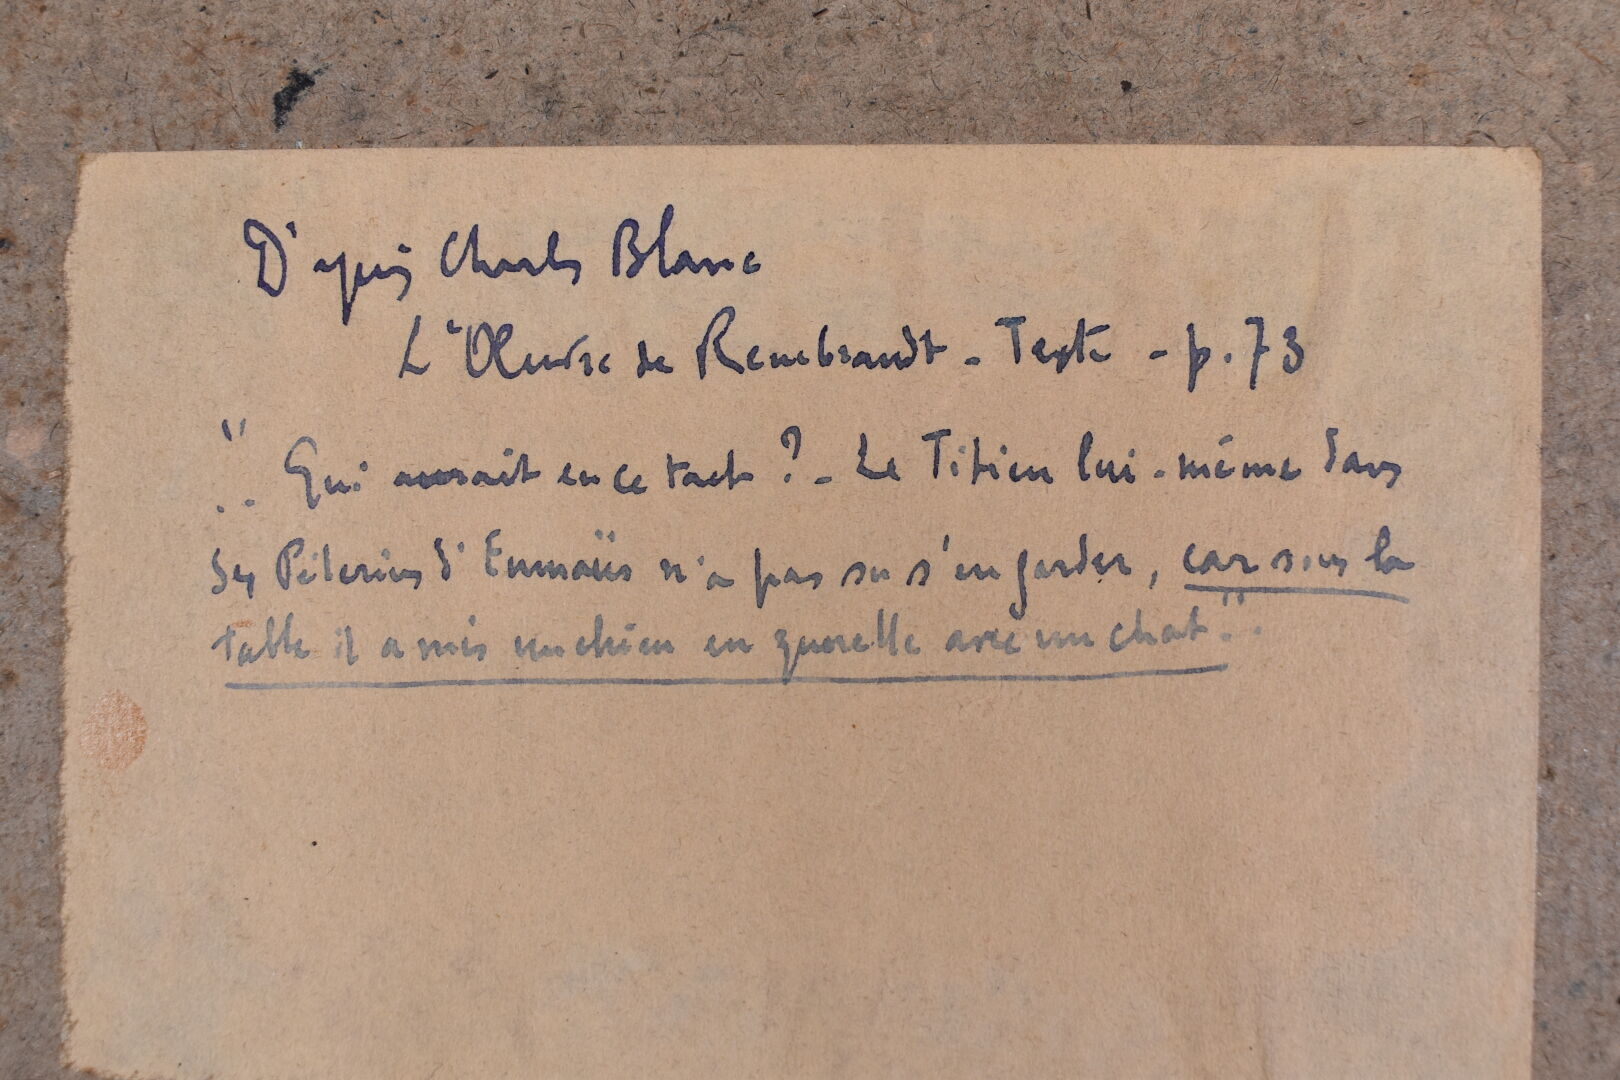 D'après Charles Blanc
L'Œuvre de Rembrandt - Texte - p. 73
".. Qui aurait eu ce tact ? - Le Titien lui-même dans
ses Pèlerins d'Emmaüs n'a pas su s'en garder, car sous la
table il a mis un chien en querelle avec un chat".